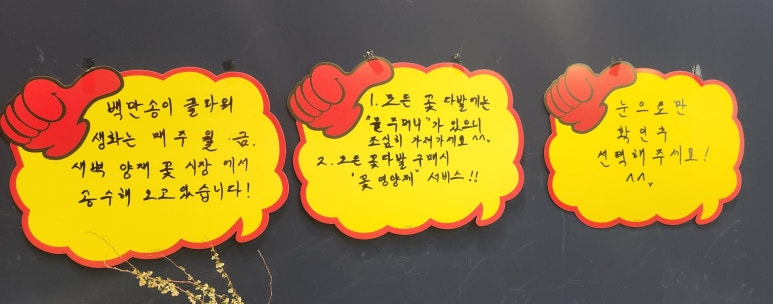 백만송이 플라워
생화는 매주 월·금.
새벽 양재 꽃 시장 에서
공수해 오고있습니다!
1. 모든 꽃 다발 에는
"물주머니"가 있으니
조심히 가져가세요 ^^.
2. 모든 꽃다발 구매시
"꽃 영양제" 서비스!!
눈으로만
확인후
선택해주세요!
^^.